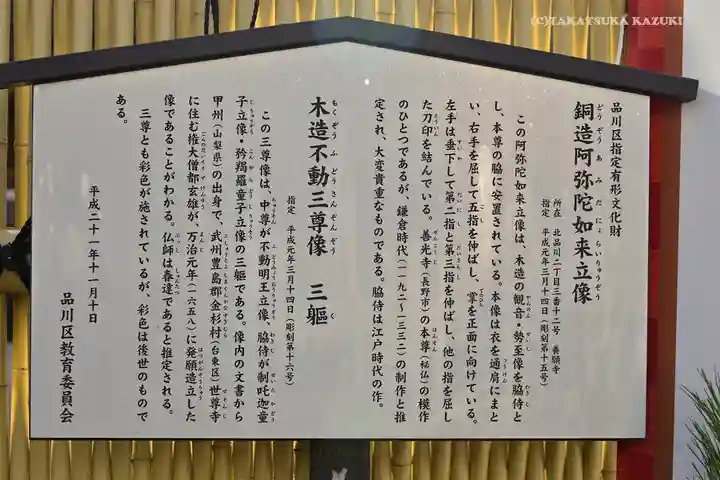 (C)TAKATSUKA KAZUKI
品川区指定有形文化財
銅造阿弥陀如来立像
どうぞうあみだにょらいりゅうぞう
所在 北品川二丁目三番十二号 養願寺
指定 平成元年三月十四日(彫刻第十五号)
この阿弥陀如来立像は、木造の観音・勢至像を脇侍と
し、本尊の脇に安置されている。本像は衣を通肩にまと
い、右手を屈して五指を伸ばし、掌を正面に向けている。
左手は垂下して第二指と第三指を伸ばし、他の指を屈し
た刀印を結んでいる。善光寺(長野市)の本尊(秘仏)の模作
のひとつであるが、鎌倉時代(一一九二~一三三三)の制作と推
定され、大変貴重なものである。脇侍は江戸時代の作。
木造不動三尊像 三軀
もくぞうふどうさんぞんぞう く
指定 平成元年三月十四日(彫刻第十六号)
この三尊像は、中尊が不動明王立像、脇侍が制吒迦童
子立像・矜羯羅童子立像の三軀である。像内の文書から
甲州(山梨県)の出身で、武州豊島郡金杉村(台東区)世尊寺
に住む権大僧都玄雄が、万治元年(一六五八)に発願造立した
像であることがわかる。仏師は春達であると推定される。
三尊とも彩色が施されているが、彩色は後世のもので
ある。
平成二十一年十一月十日
品川区教育委員会